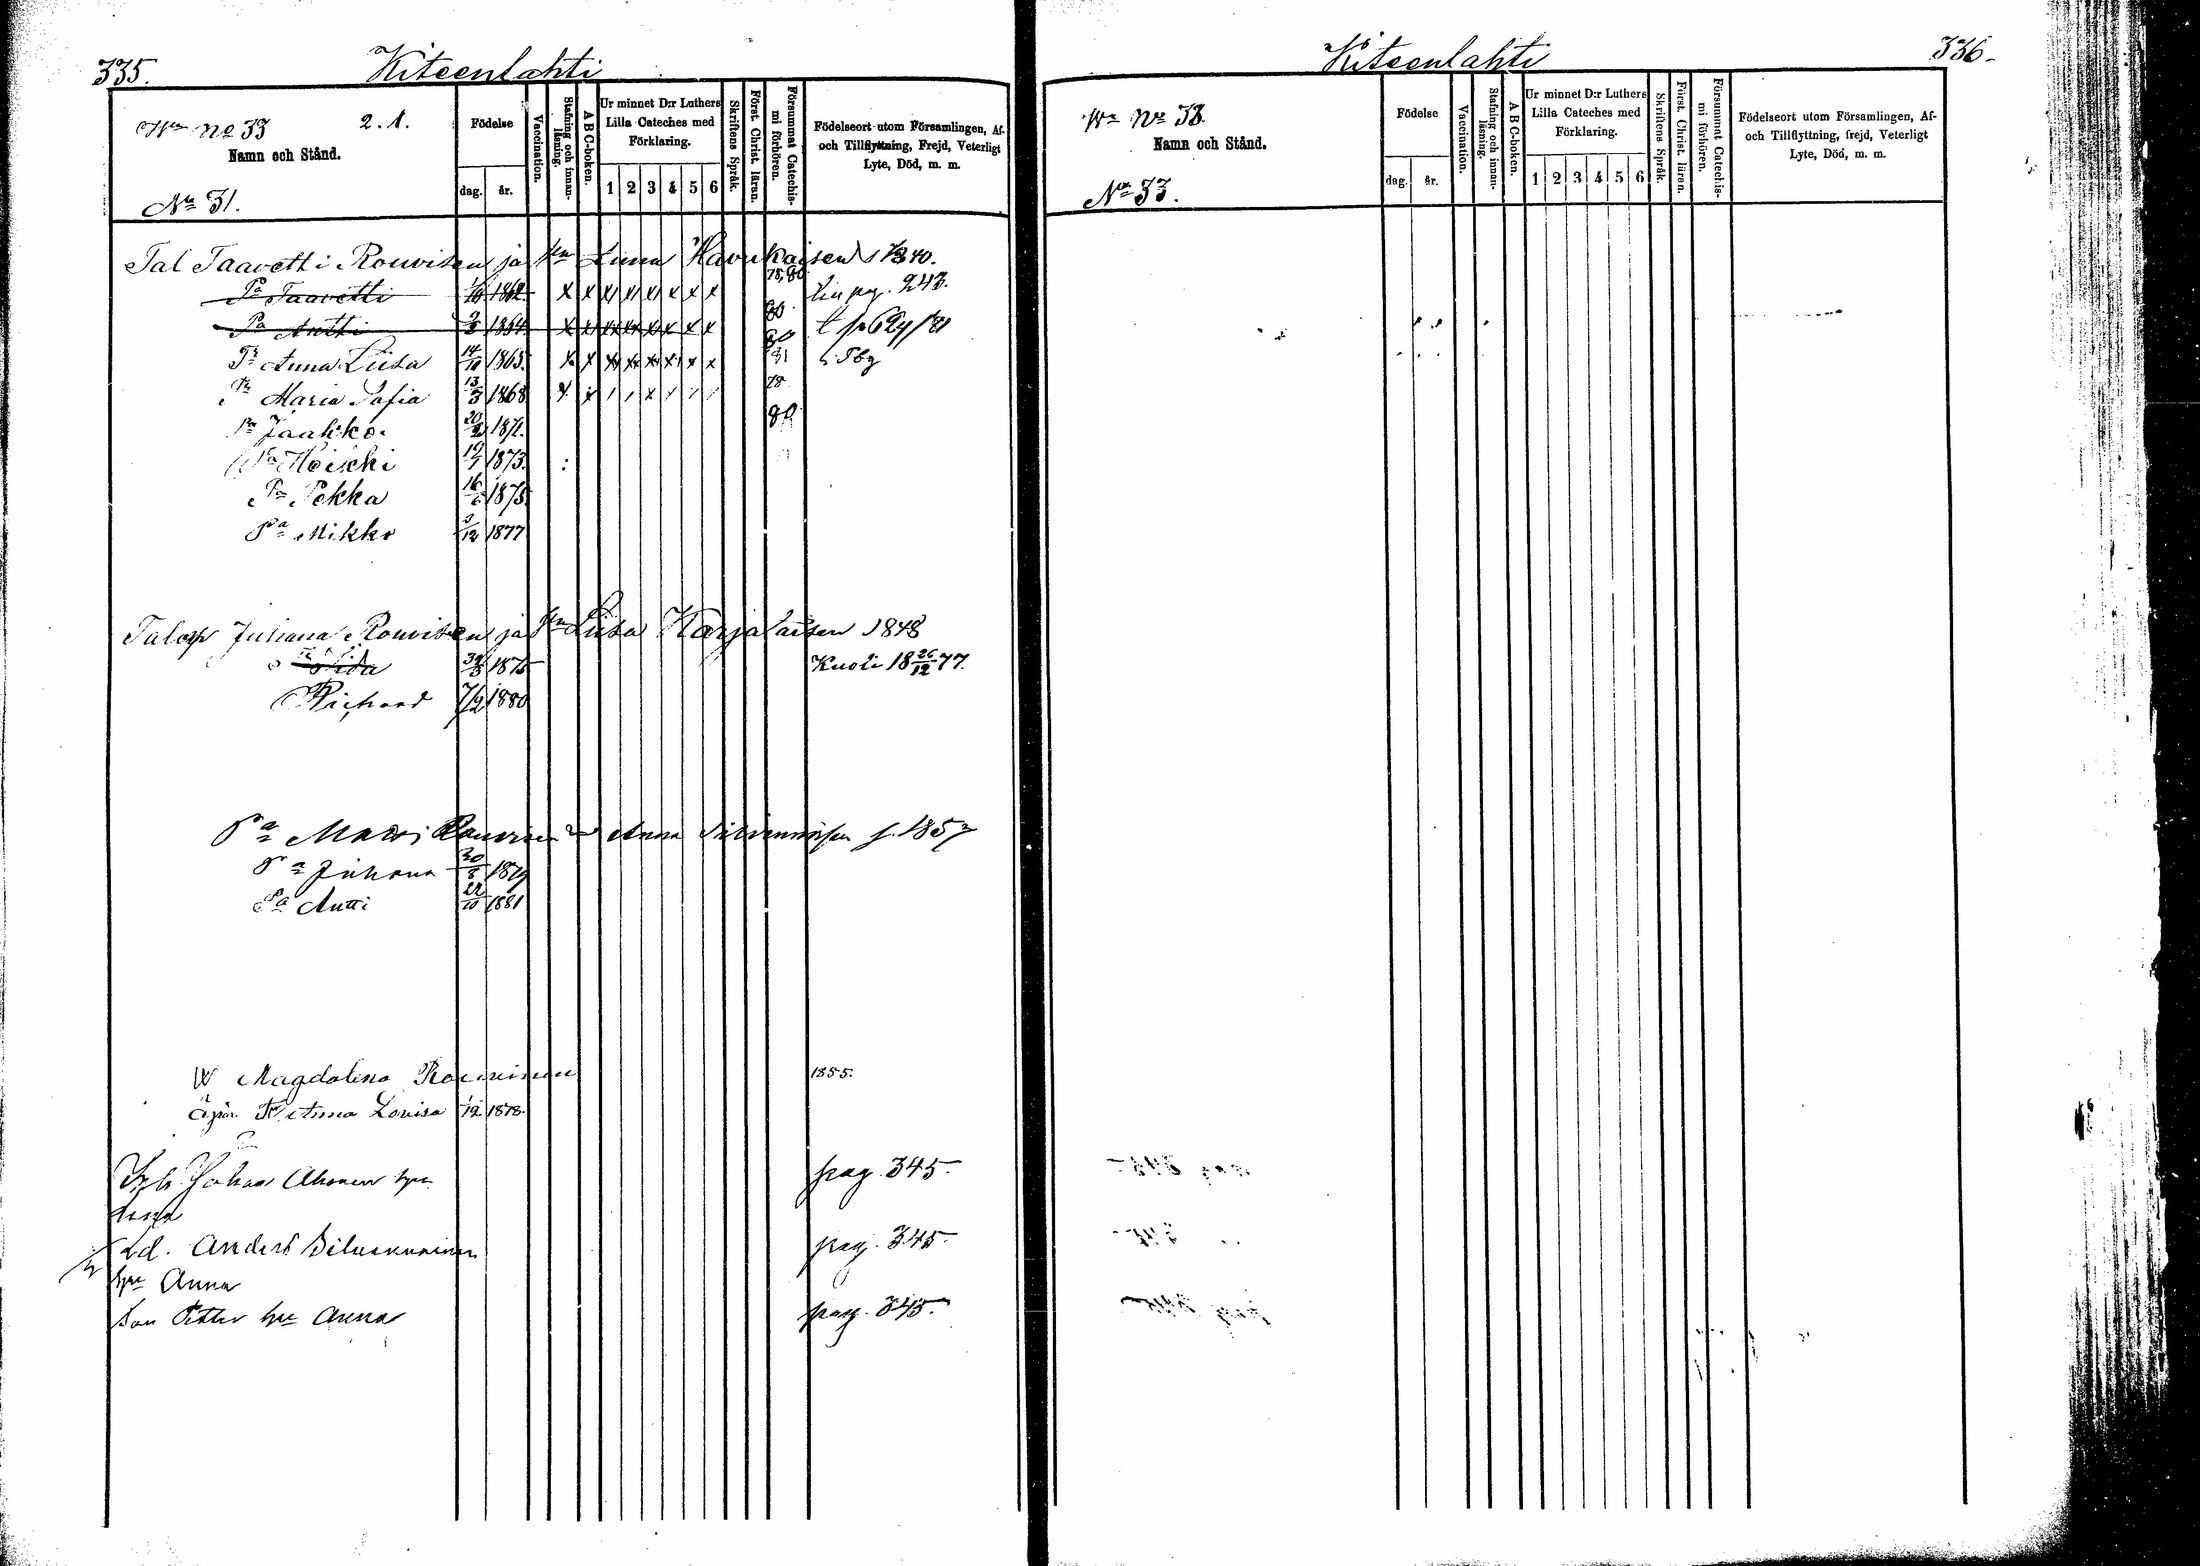 335.
Kiteenlahti
Wn No 33
2. 1.
Namn och Stånd.
No 31.
Födelse
dag. år.
Vaccination.
Stafning och innanläsning.
A B C-boken.
Ur minnet D:r Luthers Lilla Cateches med Förklaring.
1 2 3 4 5 6
Skriftens Språk.
Först. Christ. läran.
Försummat Catechismi förhören.
Födelseort utom Församlingen, Af- och Tillflyttning, Frejd, Veterligt Lyte, Död, m. m.
Tal Taavetti Rouvisen ja Anna Havukaisen 1840.
78, 80
Pa Taavetti 1862 x x x x x x x x pag. 243.
80
Pa Antti 1864 x x x x x x x x
80
Tr Anna Liisa 14/10 1865. x x x x x x x x 81
Tr Maria Sofia 13/3 1868 x x 1 1 x 1 1 1 78
80
Pa Jaakko 20/2 1871.
Pa Heikki 19/7 1873.
Pa Pekka 16/6 1875.
Pa Mikko 3/12 1877
Juhana Rouvisen ja Liisa Karjalaisen 1848
Iida 1875 Kuoli 18 26/12 77.
Richard 7/2 1880
Pa Anna 1857
Pa Juhana 30/8 1879
Pa Antti 22/10 1881
W Magdalena Rouvinen 1855.
Tr Anna Lovisa 1/12 1878.
Johan Ahonen hu pag. 345.
Anna
Ld. Anders pag. 345.
hu Anna
Son Petter hu Anna pag. 345.
Kiteenlahti
336.
Wn No 38.
Namn och Stånd.
No 33.
Födelse
dag. år.
Vaccination.
Stafning och innanläsning.
A B C-boken.
Ur minnet D:r Luthers Lilla Cateches med Förklaring.
1 2 3 4 5 6
Skriftens Språk.
Först. Christ. läran.
Försummat Catechismi förhören.
Födelseort utom Församlingen, Af- och Tillflyttning, frejd, Veterligt Lyte, Död, m. m.